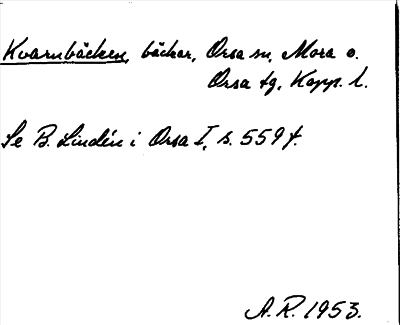 Kvarnbäcken, bäckar, Orsa sn, Mora o.
Orsa tg, Kopp. l.
Se B. Lindén i Orsa I, s. 559 f.
A.R. 1953.